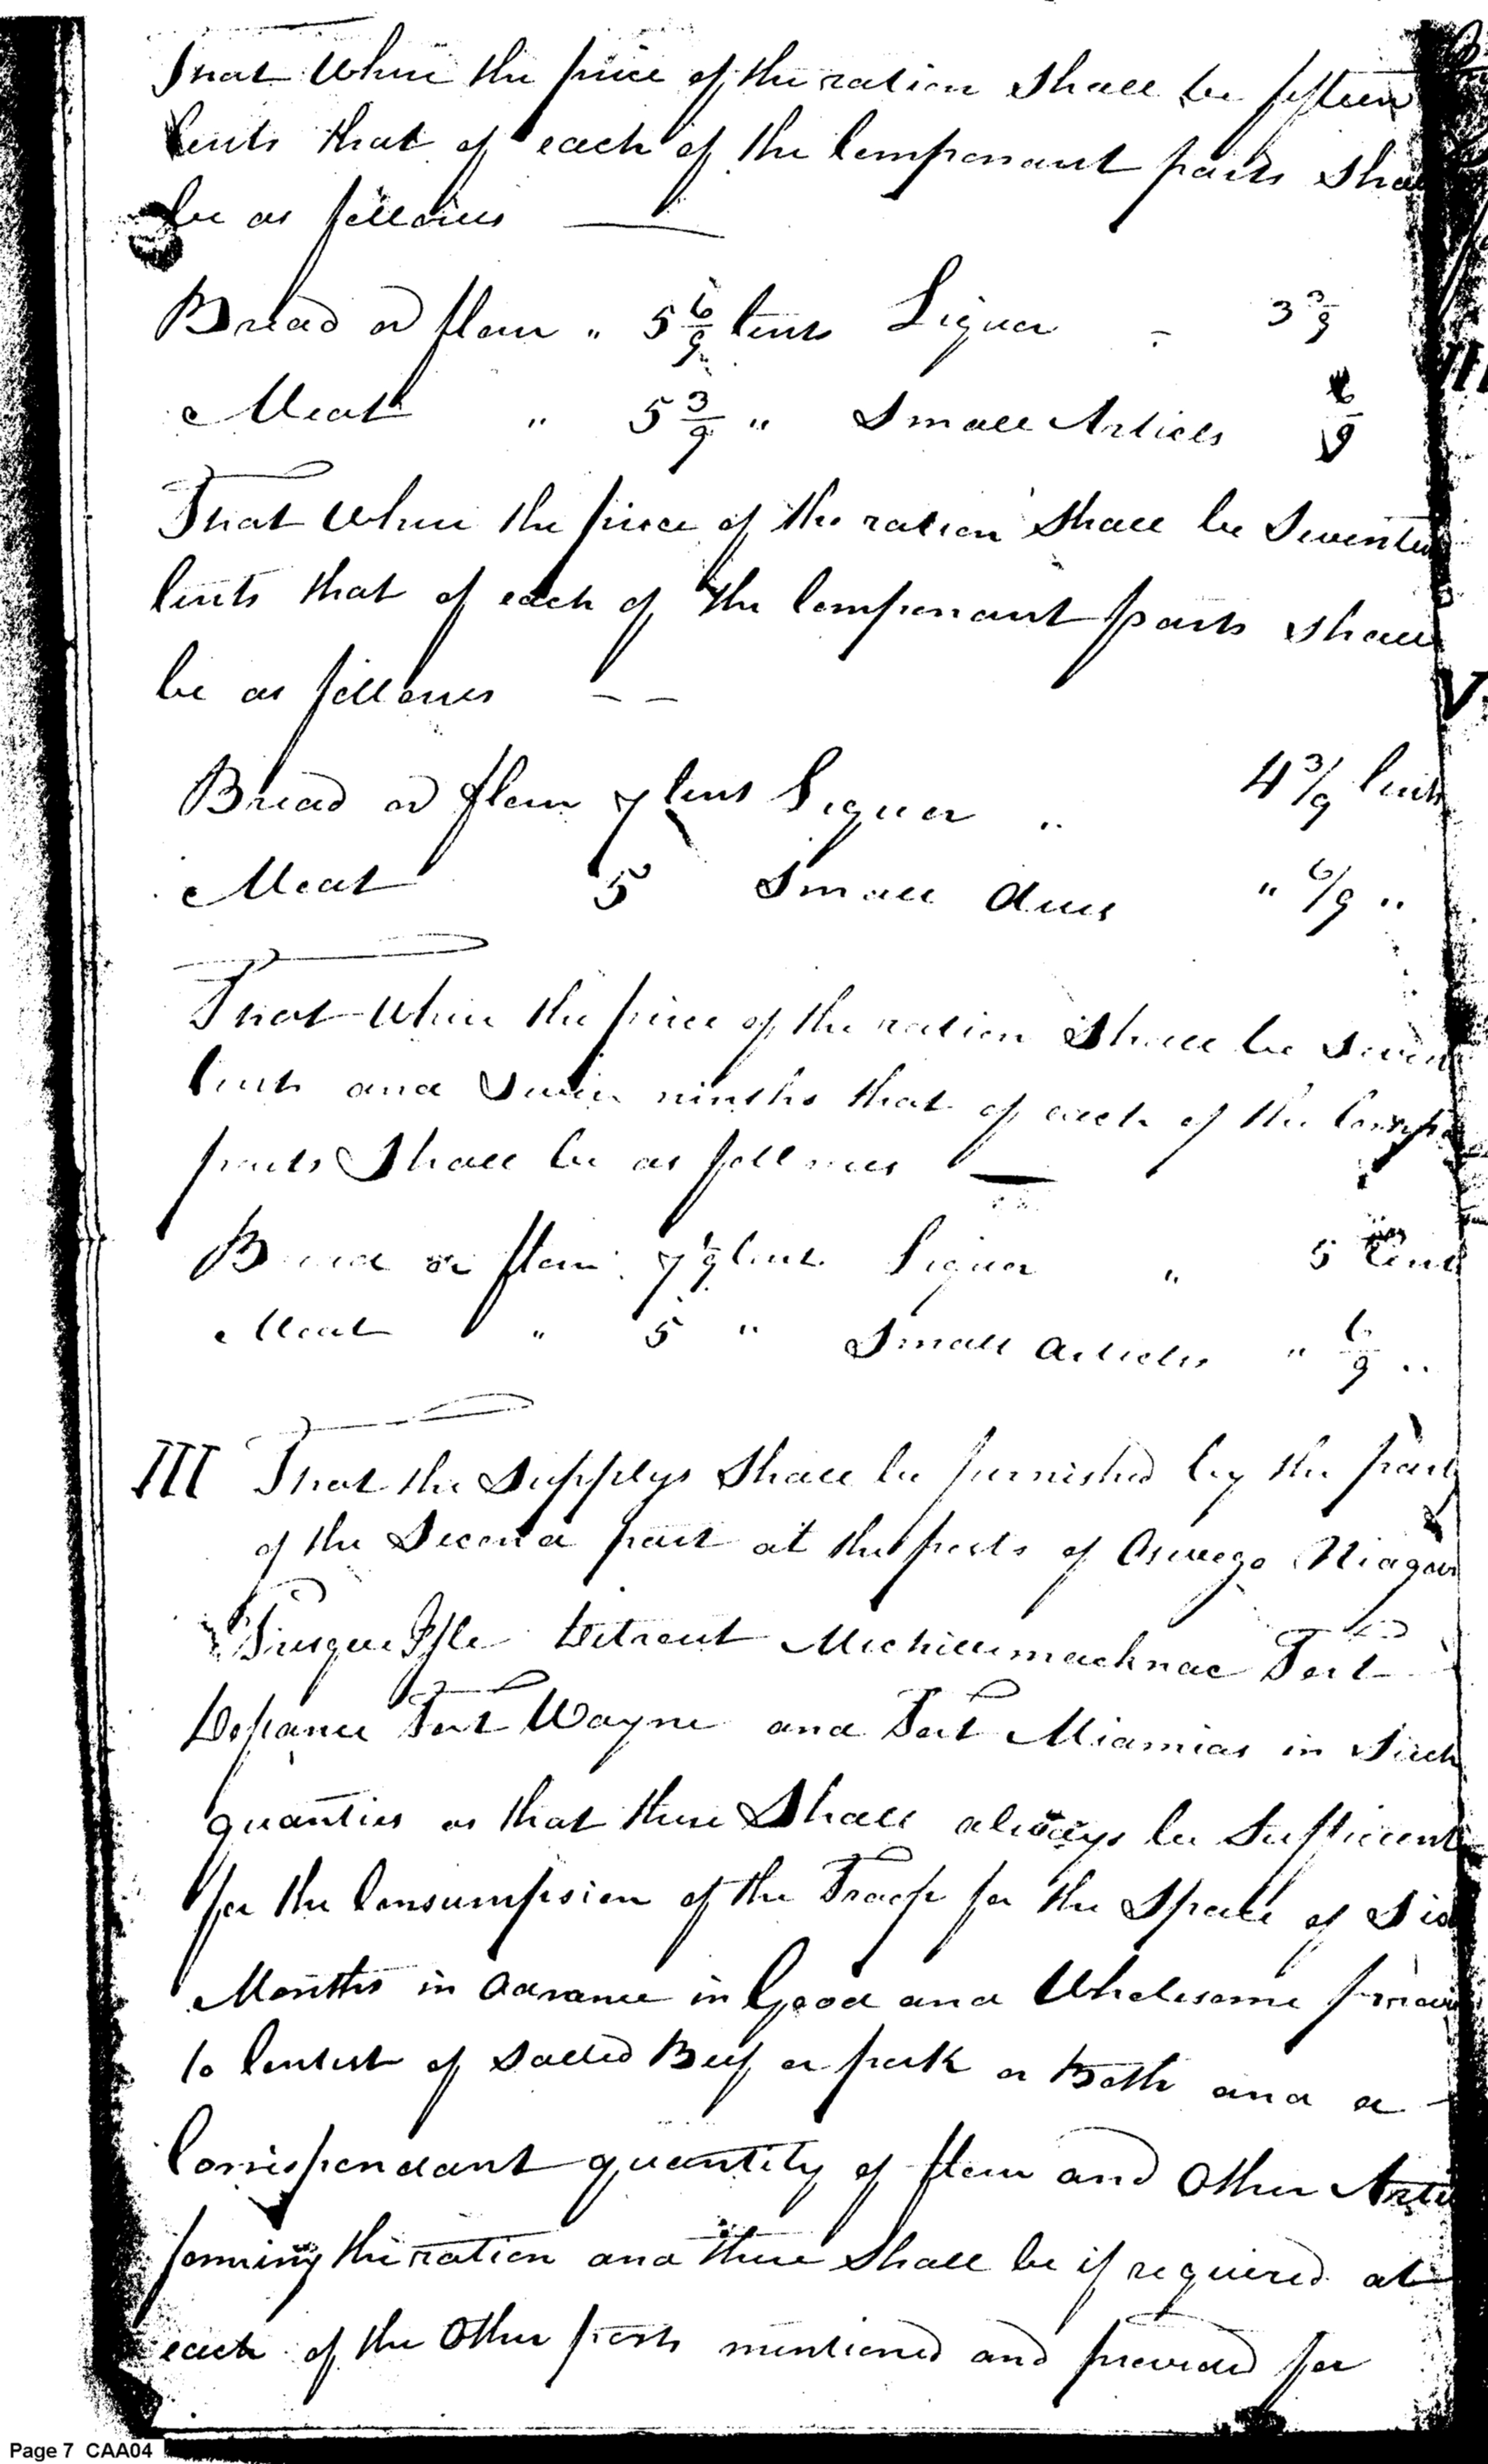 That when the price of the ration shall be fifteen
Cents that of each of the Componant parts shall
be as follows
Bread or flour " 5 6/9 Cents Liquor - 3 3/9
Meat " 5 3/9 " Small Articles 6/9
That when the price of the ration shall be Seventeen
Cents that of each of the Componant parts shall
be as follows - -
Bread or flour 7 Cents Liquor " 4 3/9 Cents
Meat 5 Small " 6/9 "
That when the price of the ration shall be
Cents and Seven ninths that of each of the
parts Shall be as follows
Bread or flour 7 1/9 Cents Liquor " 5 Cents
Meat " 5 " Small articles " 6/9 "
III That the Supplys Shall be furnished by the part
of the Second part at the posts of Oswego Niagar
Presque Isle Detroit Michilimacknac Fort
Defiance Fort Wayne and Fort Miamias in Such
quanties as that there Shall always be Sufficient
for the Consumpsion of the Troops for the Space of Six
Months in advance in Good and Wholesome
to Consist of Salted Beef or pork or Both and a
Corrispondant quantity of flour and Other Arti
forming the ration and there shall be if required at
each of the Other posts mentioned and provided for
Page 7 CAA04